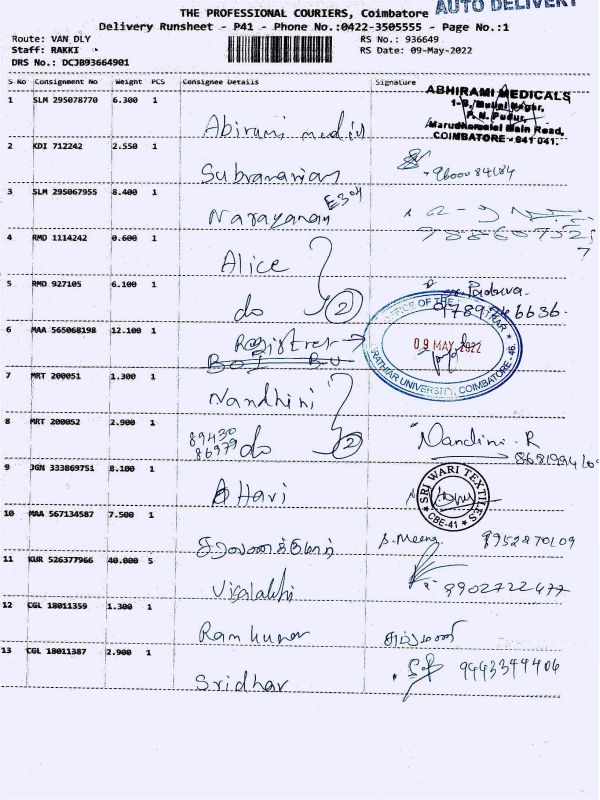 AUTO DELIVERY
THE PROFESSIONAL COURIERS, Coimbatore
Delivery Runsheet - P41 - Phone No.:0422-3505555 - Page No.:1
Route: VAN DLY
Staff: RAKKI
DRS No.: DCJB93664901
RS No.: 936649
RS Date: 09-May-2022
S No Consignment No Weight PCS Consignee Details Signature
1 SLM 295078770 6.300 1
Abirami
ABHIRAMI MEDICALS
P. N. Pudur,
Marudhamalai Main Road,
COIMBATORE - 641 041.
2 KDI 712242 2.550 1
Subramanian
3 SLM 295067955 8.400 1
Narayanan E304
4 RMD 1114242 0.600 1
Alice
5 RMD 927105 6.100 1
do 2
6 MAA 565068198 12.100 1
Registrar
09 MAY 2022
UNIVERSITY, COIMBATORE - 46.
7 MRT 200051 1.300 1
Nandhini
8 MRT 200052 2.900 1
89430
86979 do 2
Nandini - R
9 JGN 333869751 8.100 1
Hari
SRI WARI TEXTILES
CBE-41
10 MAA 567134587 7.500 1
சரவணக்குமார்
S. Meena 8952870109
11 KUR 526377966 40.000 5
Visalakhi
9902722477
12 CGL 18011359 1.300 1
Ram kumar
13 CGL 18011387 2.900 1
Sridhar
9443344406